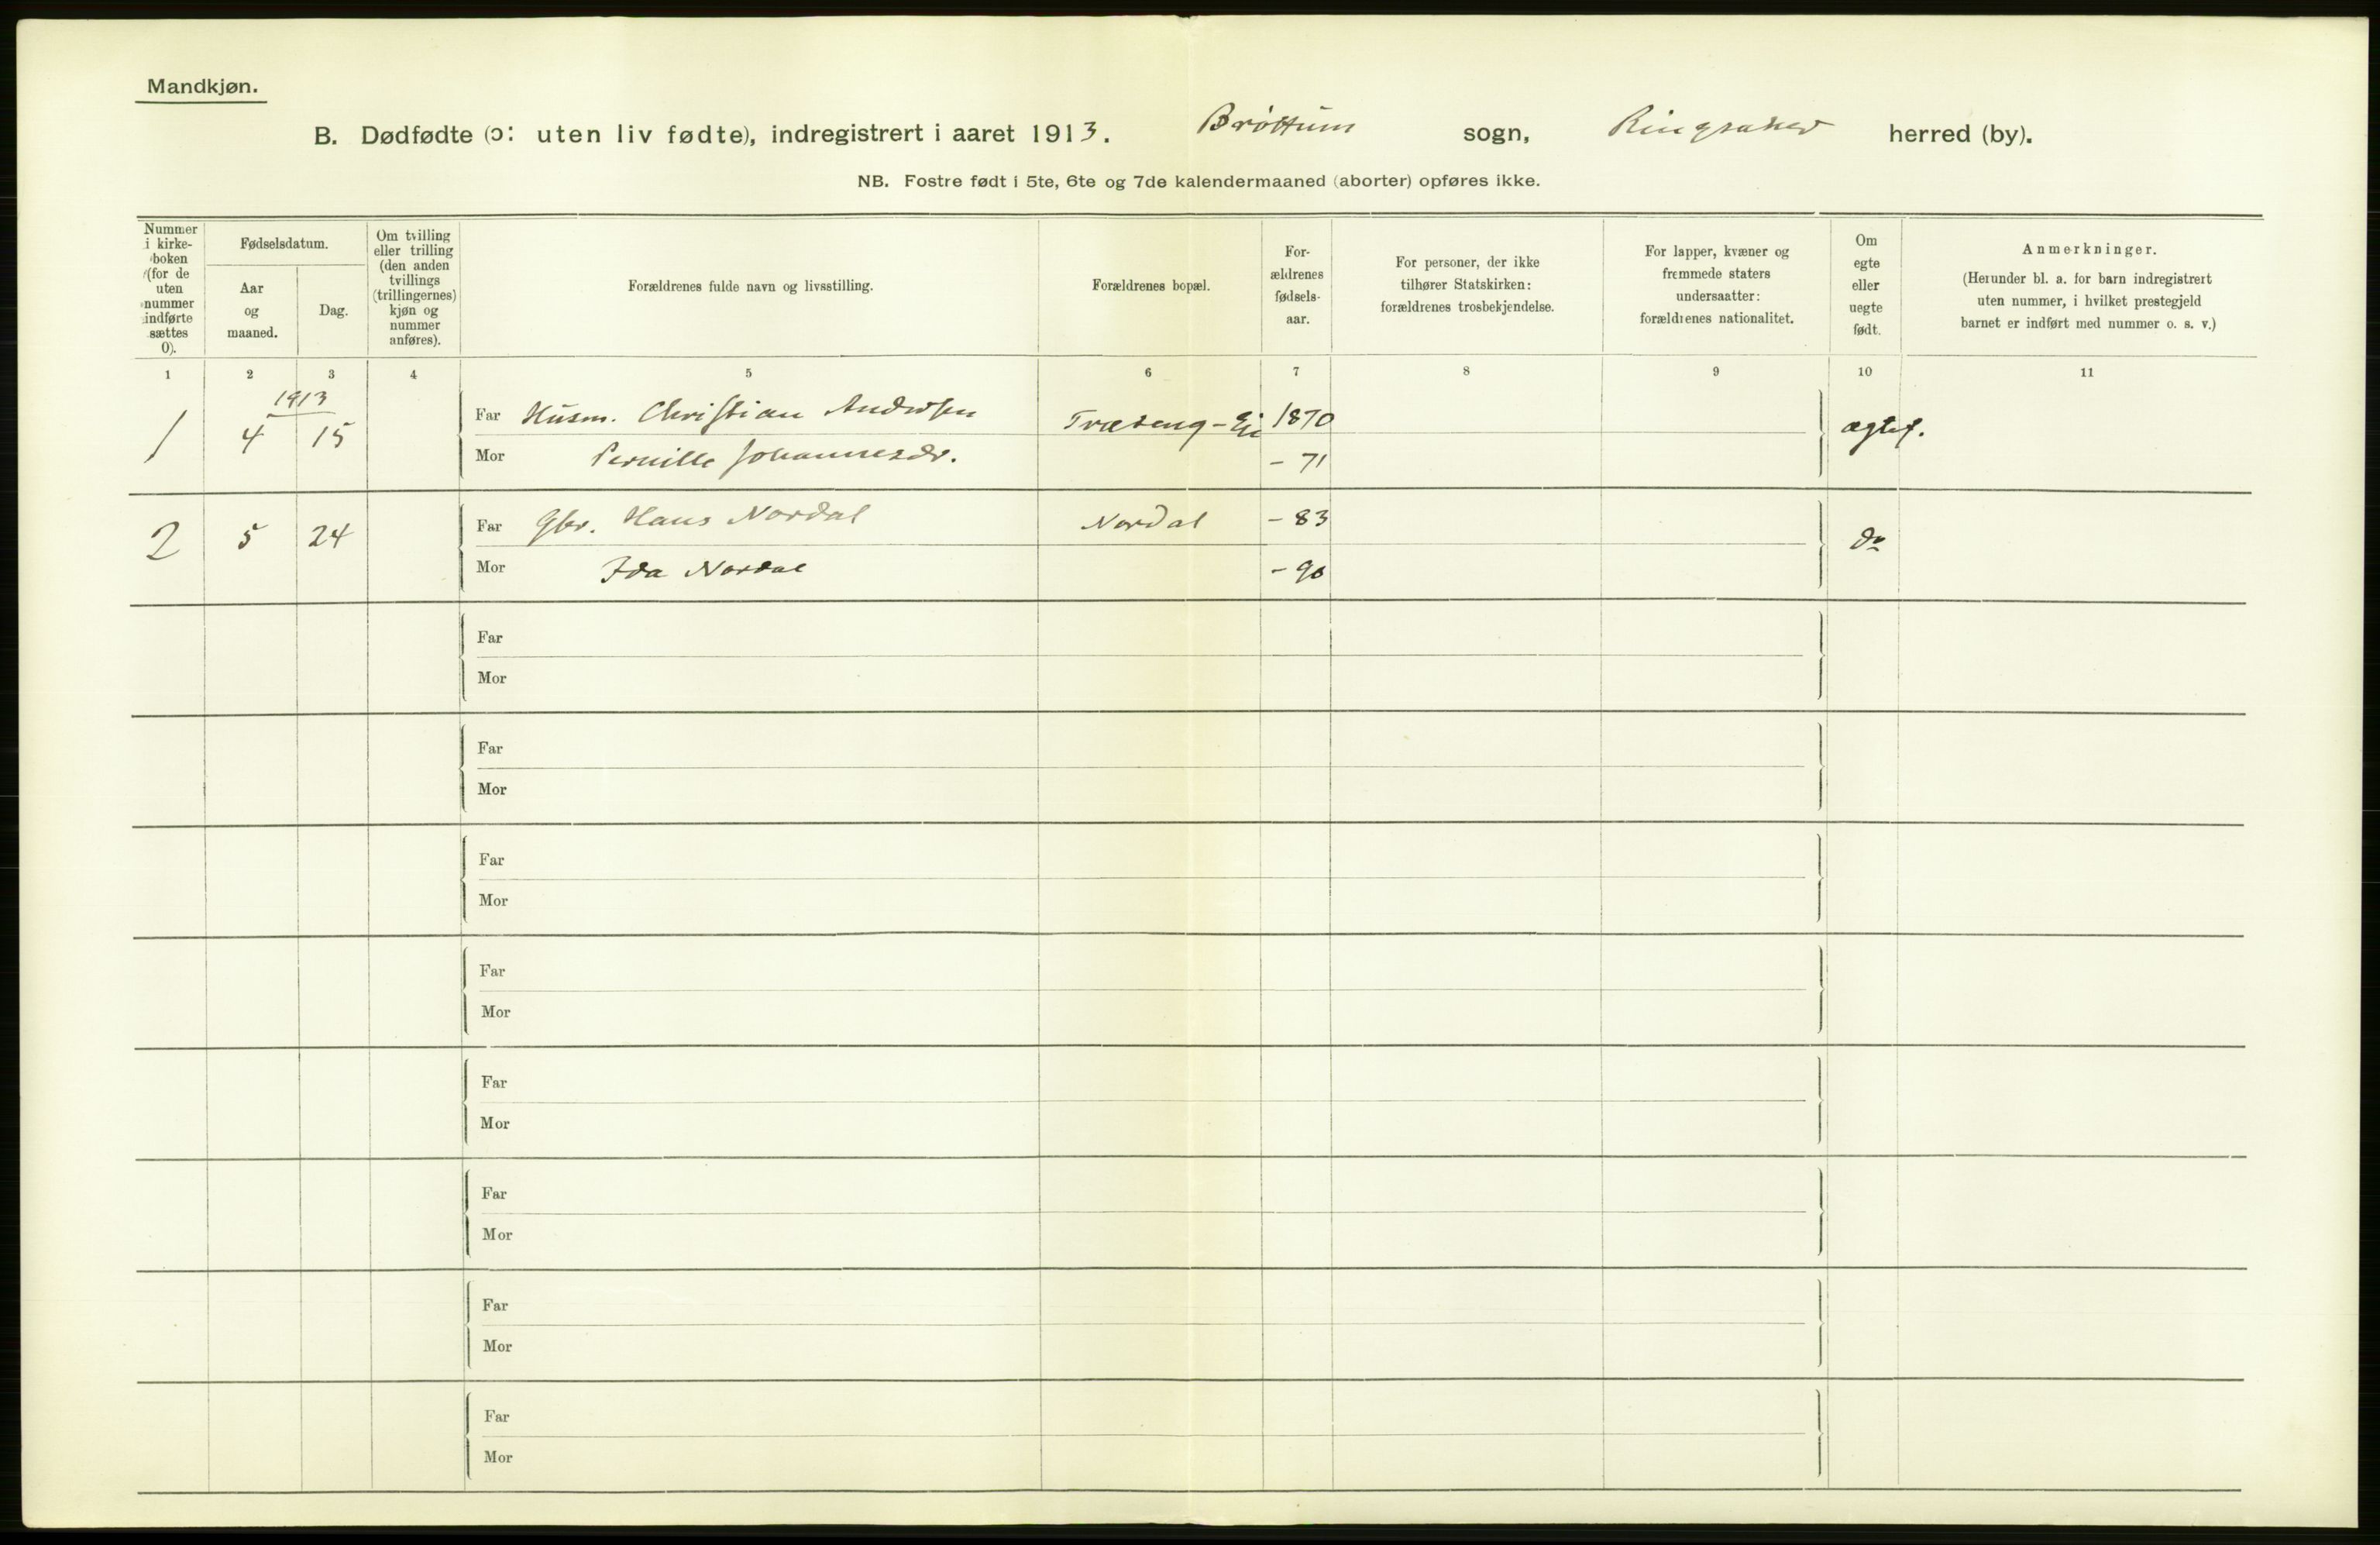 Mandkjøn.
B. Dødfødte (ɔ: uten liv fødte), indregistrert i aaret 1913. Brøttum sogn, Ringsaker herred (by).
NB. Fostre født i 5te, 6te og 7de kalendermaaned (aborter) opføres ikke.
Nummer
i kirke-
boken
(for de
uten
nummer
indførte
sættes
0).
Fødselsdatum.
Aar
og
maaned.
Dag.
Om tvilling
eller trilling
(den anden
tvillings
(trillingernes)
kjøn og
nummer
anføres).
Forældrenes fulde navn og livsstilling.
Forældrenes bopæl.
For-
ældrenes
fødsels-
aar.
For personer, der ikke
tilhører Statskirken:
forældrenes trosbekjendelse.
For lapper, kvæner og
fremmede staters
undersaatter:
forældrenes nationalitet.
Om
egte
eller
uegte
født.
Anmerkninger.
(Herunder bl. a. for barn indregistrert
uten nummer, i hvilket prestegjeld
barnet er indført med nummer o. s. v.)
1 2 3 4 5 6 7 8 9 10 11
1913
1 4 15 Far Husm. Christian Andersen Træseng - Ei 1870 ægtef.
Mor Pernille Johannesdr. - 71
2 5 24 Far Gbr. Hans Nordal Nordal - 83 do
Mor Ida Nordal - 90
Far
Mor
Far
Mor
Far
Mor
Far
Mor
Far
Mor
Far
Mor
Far
Mor
Far
Mor